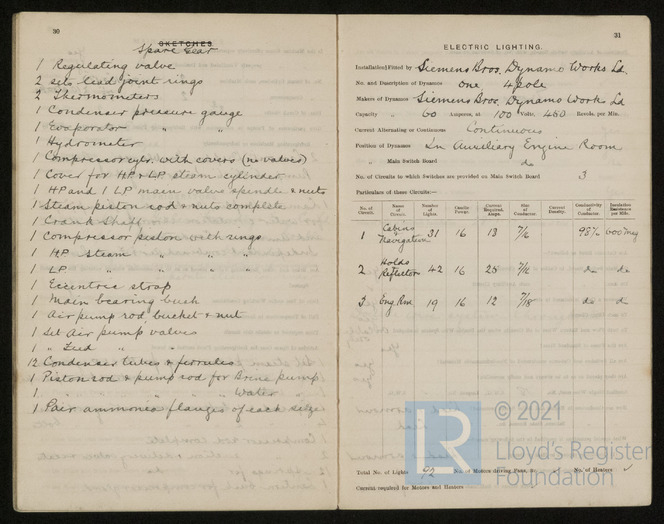 30
SKETCHES
Spare Gear
1 Regulating valve
2 sets lead joint rings
2 Thermometers
1 Condenser pressure gauge
1 Evaporator " "
1 Hydrometer
1 Compressor cylr. with covers (no valves)
1 Cover for HP & LP steam cylinder
1 HP and 1 LP main valve spindle & nuts
1 Steam piston rod & nuts complete
1 Crank Shaft
1 Compressor piston with rings
1 HP steam " " "
1 LP " " " "
1 Eccentric strap
1 Main bearing bush
1 Air pump rod bucket & nut
1 Set Air pump valves
1 " Feed " "
12 Condenser tubes & ferrules
1 Piston rod & pump rod for Brine pump
1 " " " " Water "
1 Pair ammonia flanges of each size
31
ELECTRIC LIGHTING.
Installation Fitted by Siemens Bros. Dynamo Works Ld
No. and Description of Dynamos One 4 Pole
Makers of Dynamos Siemens Bros. Dynamo Works Ld
Capacity " 60 Amperes, at 100 Volts, 460 Revols. per Min.
Current Alternating or Continuous Continuous
Position of Dynamos In Auxiliary Engine Room
" Main Switch Board do
No. of Circuits to which Switches are provided on Main Switch Board 3
Particulars of these Circuits:—
No. of Circuit. Name of Circuit. Number of Lights. Candle Power. Current Required. Amps. Size of Conductor. Current Density. Conductivity of Conductor. Insulation Resistance per Mile.
1 Cabins & Navigation 31 16 13 7/16 98% 600 meg
2 Holds Reflector 42 16 25 7/16 do do
3 Eng. Rm 19 16 12 7/18 do do
Total No. of Lights 92 No. of Motors driving Fans, &c. ✓ No. of Heaters ✓
Current required for Motors and Heaters
LR © 2021
Lloyd's Register
Foundation